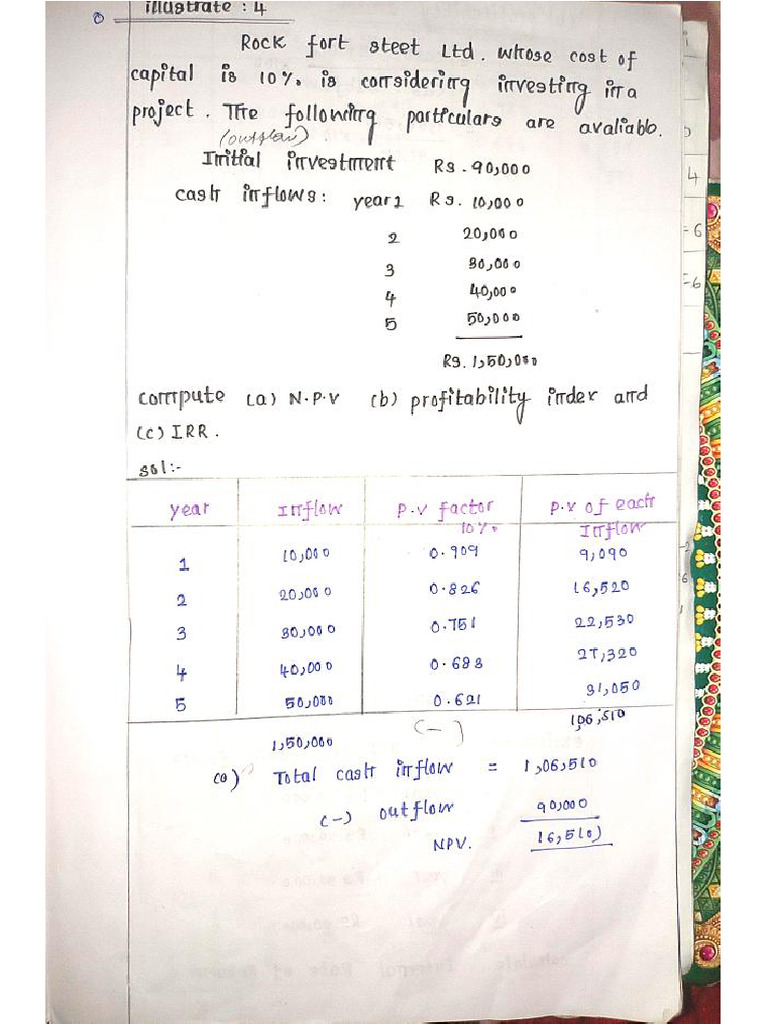 illustrate : 4
Rock fort steel Ltd. whose cost of
capital is 10% is considering investing in a
project. The following particulars are avaliable.
(outflow)
Initial investment Rs. 90,000
cash inflows: year 1 Rs. 10,000
2 20,000
3 30,000
4 40,000
5 50,000
Rs. 1,50,000
compute (a) N.P.V (b) profitability index and
(c) IRR.
sol:-
year Inflow P.V factor 10% P.V of each Inflow
1 10,000 0.909 9,090
2 20,000 0.826 16,520
3 30,000 0.751 22,530
4 40,000 0.683 27,320
5 50,000 0.621 31,050
1,50,000 (-) 1,06,510
(a) Total cash inflow = 1,06,510
(-) outflow 90,000
NPV. 16,510